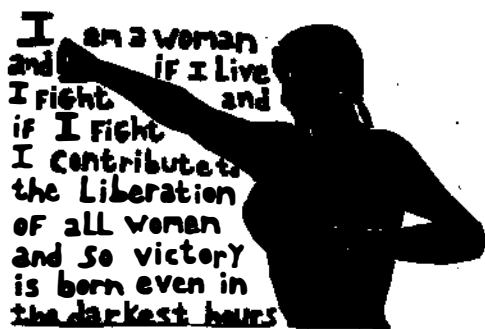 I am a woman
and if I live
I Fight and
if I Fight
I contribute to
the Liberation
of all women
and so victory
is born even in
the darkest hours